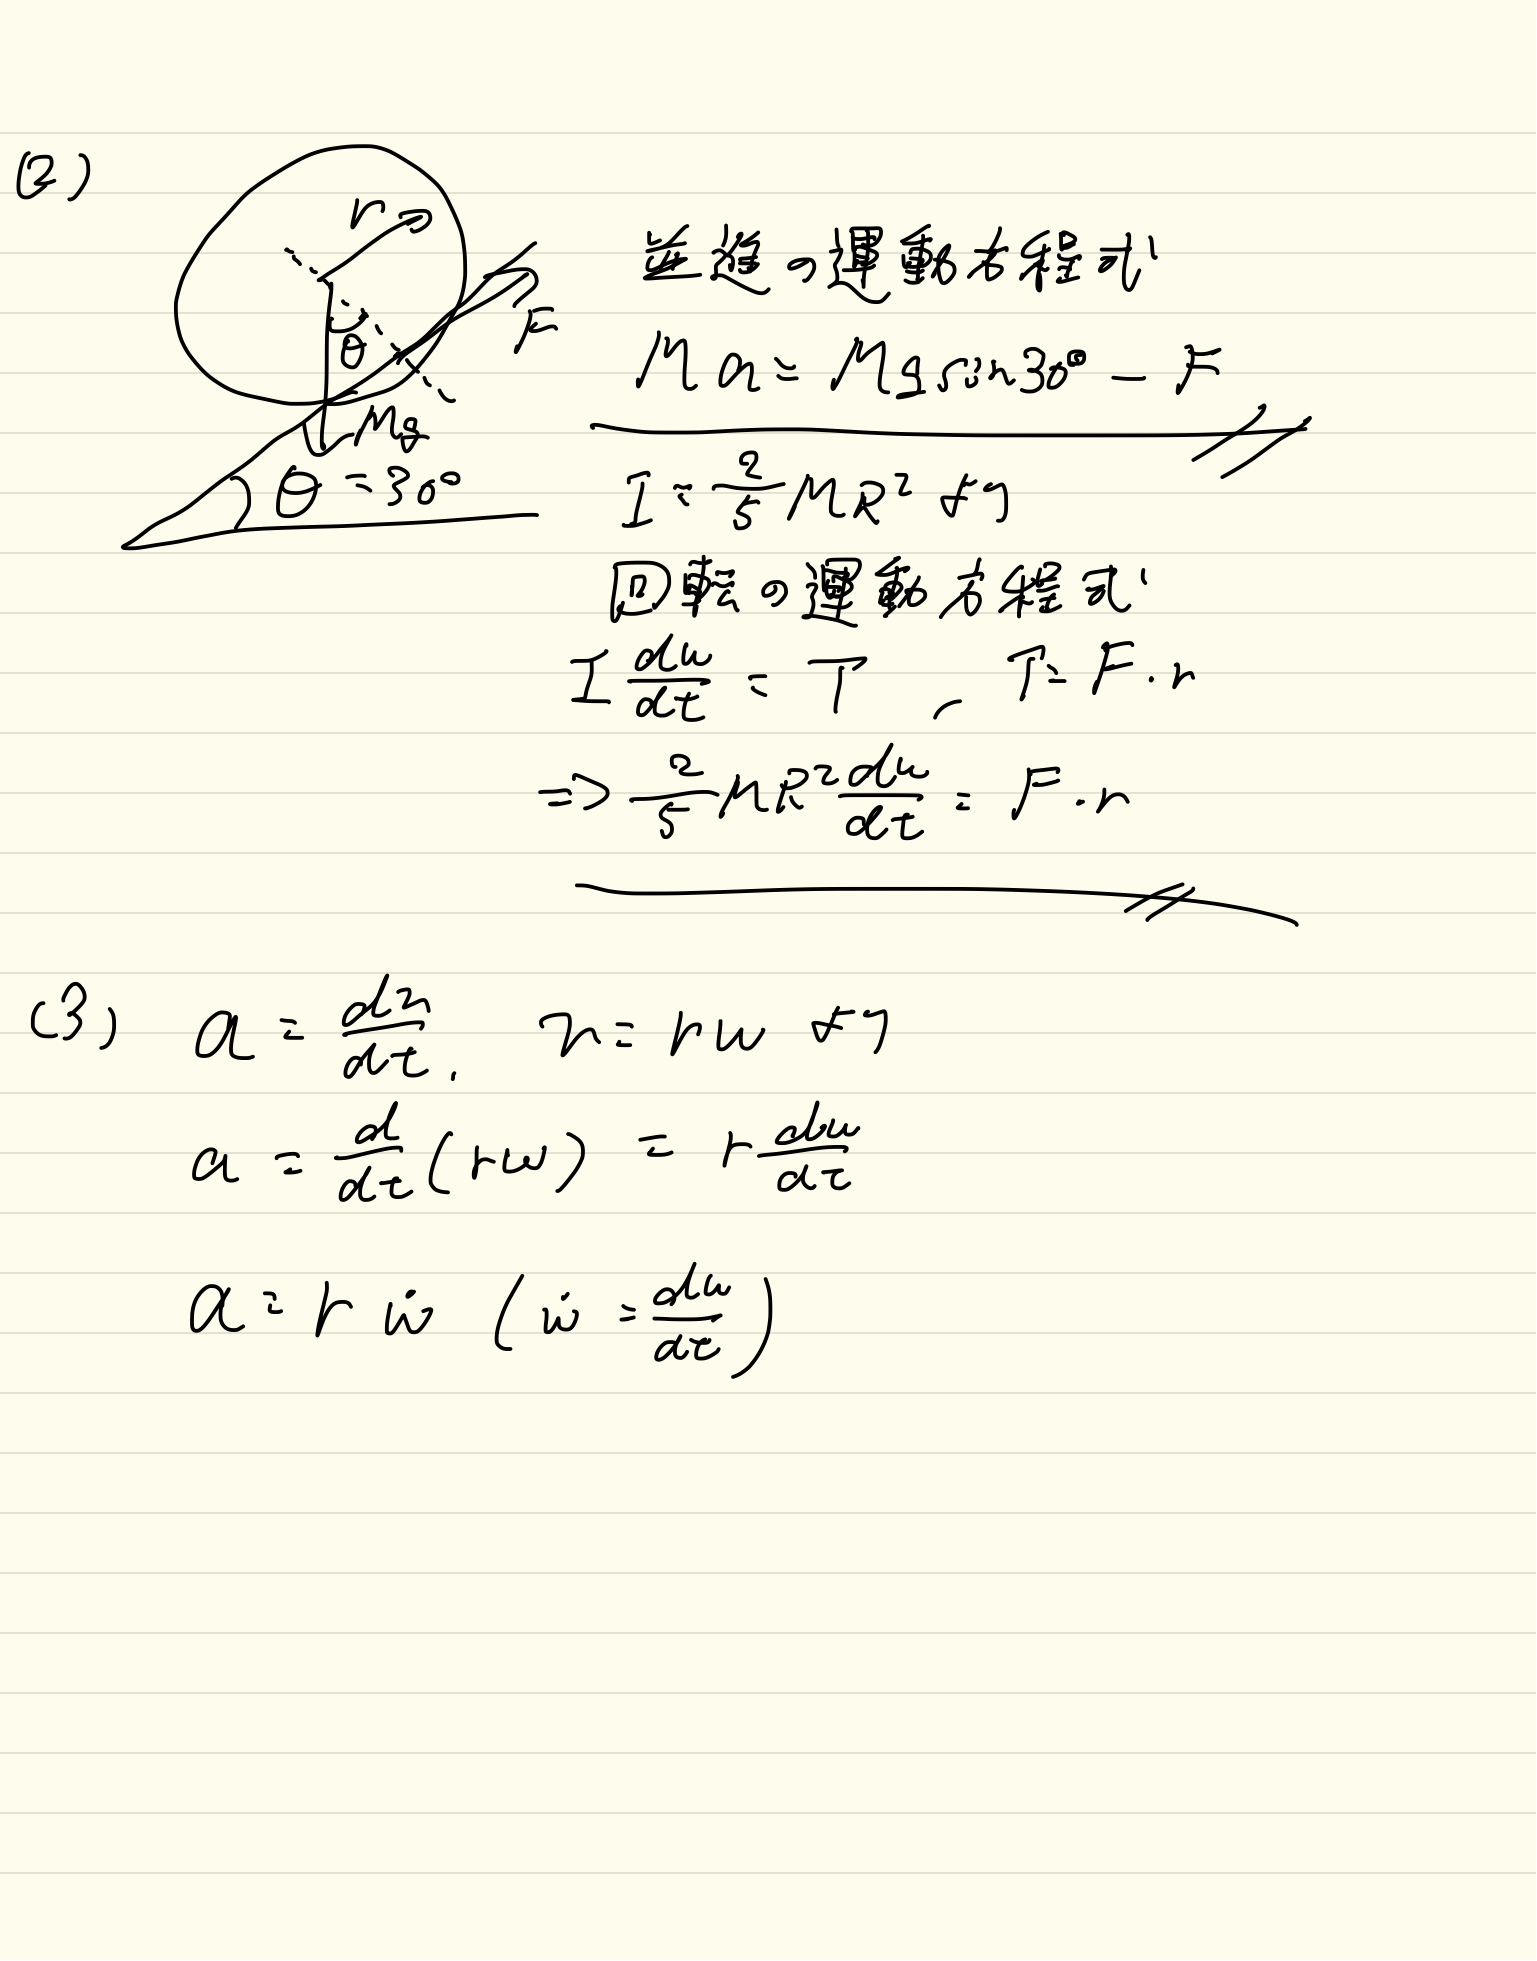 (2)
r
θ
F
Mg
θ = 30°
並進の運動方程式
Ma = Mg sin30° - F
I = 2/5 MR² より
回転の運動方程式
I dω/dt = T , T = F・r
=> 2/5 MR² dω/dt = F・r
(3) a = dv/dt , v = rω より
a = d/dt (rω) = r dω/dt
a = r ω̇ (ω̇ = dω/dt)